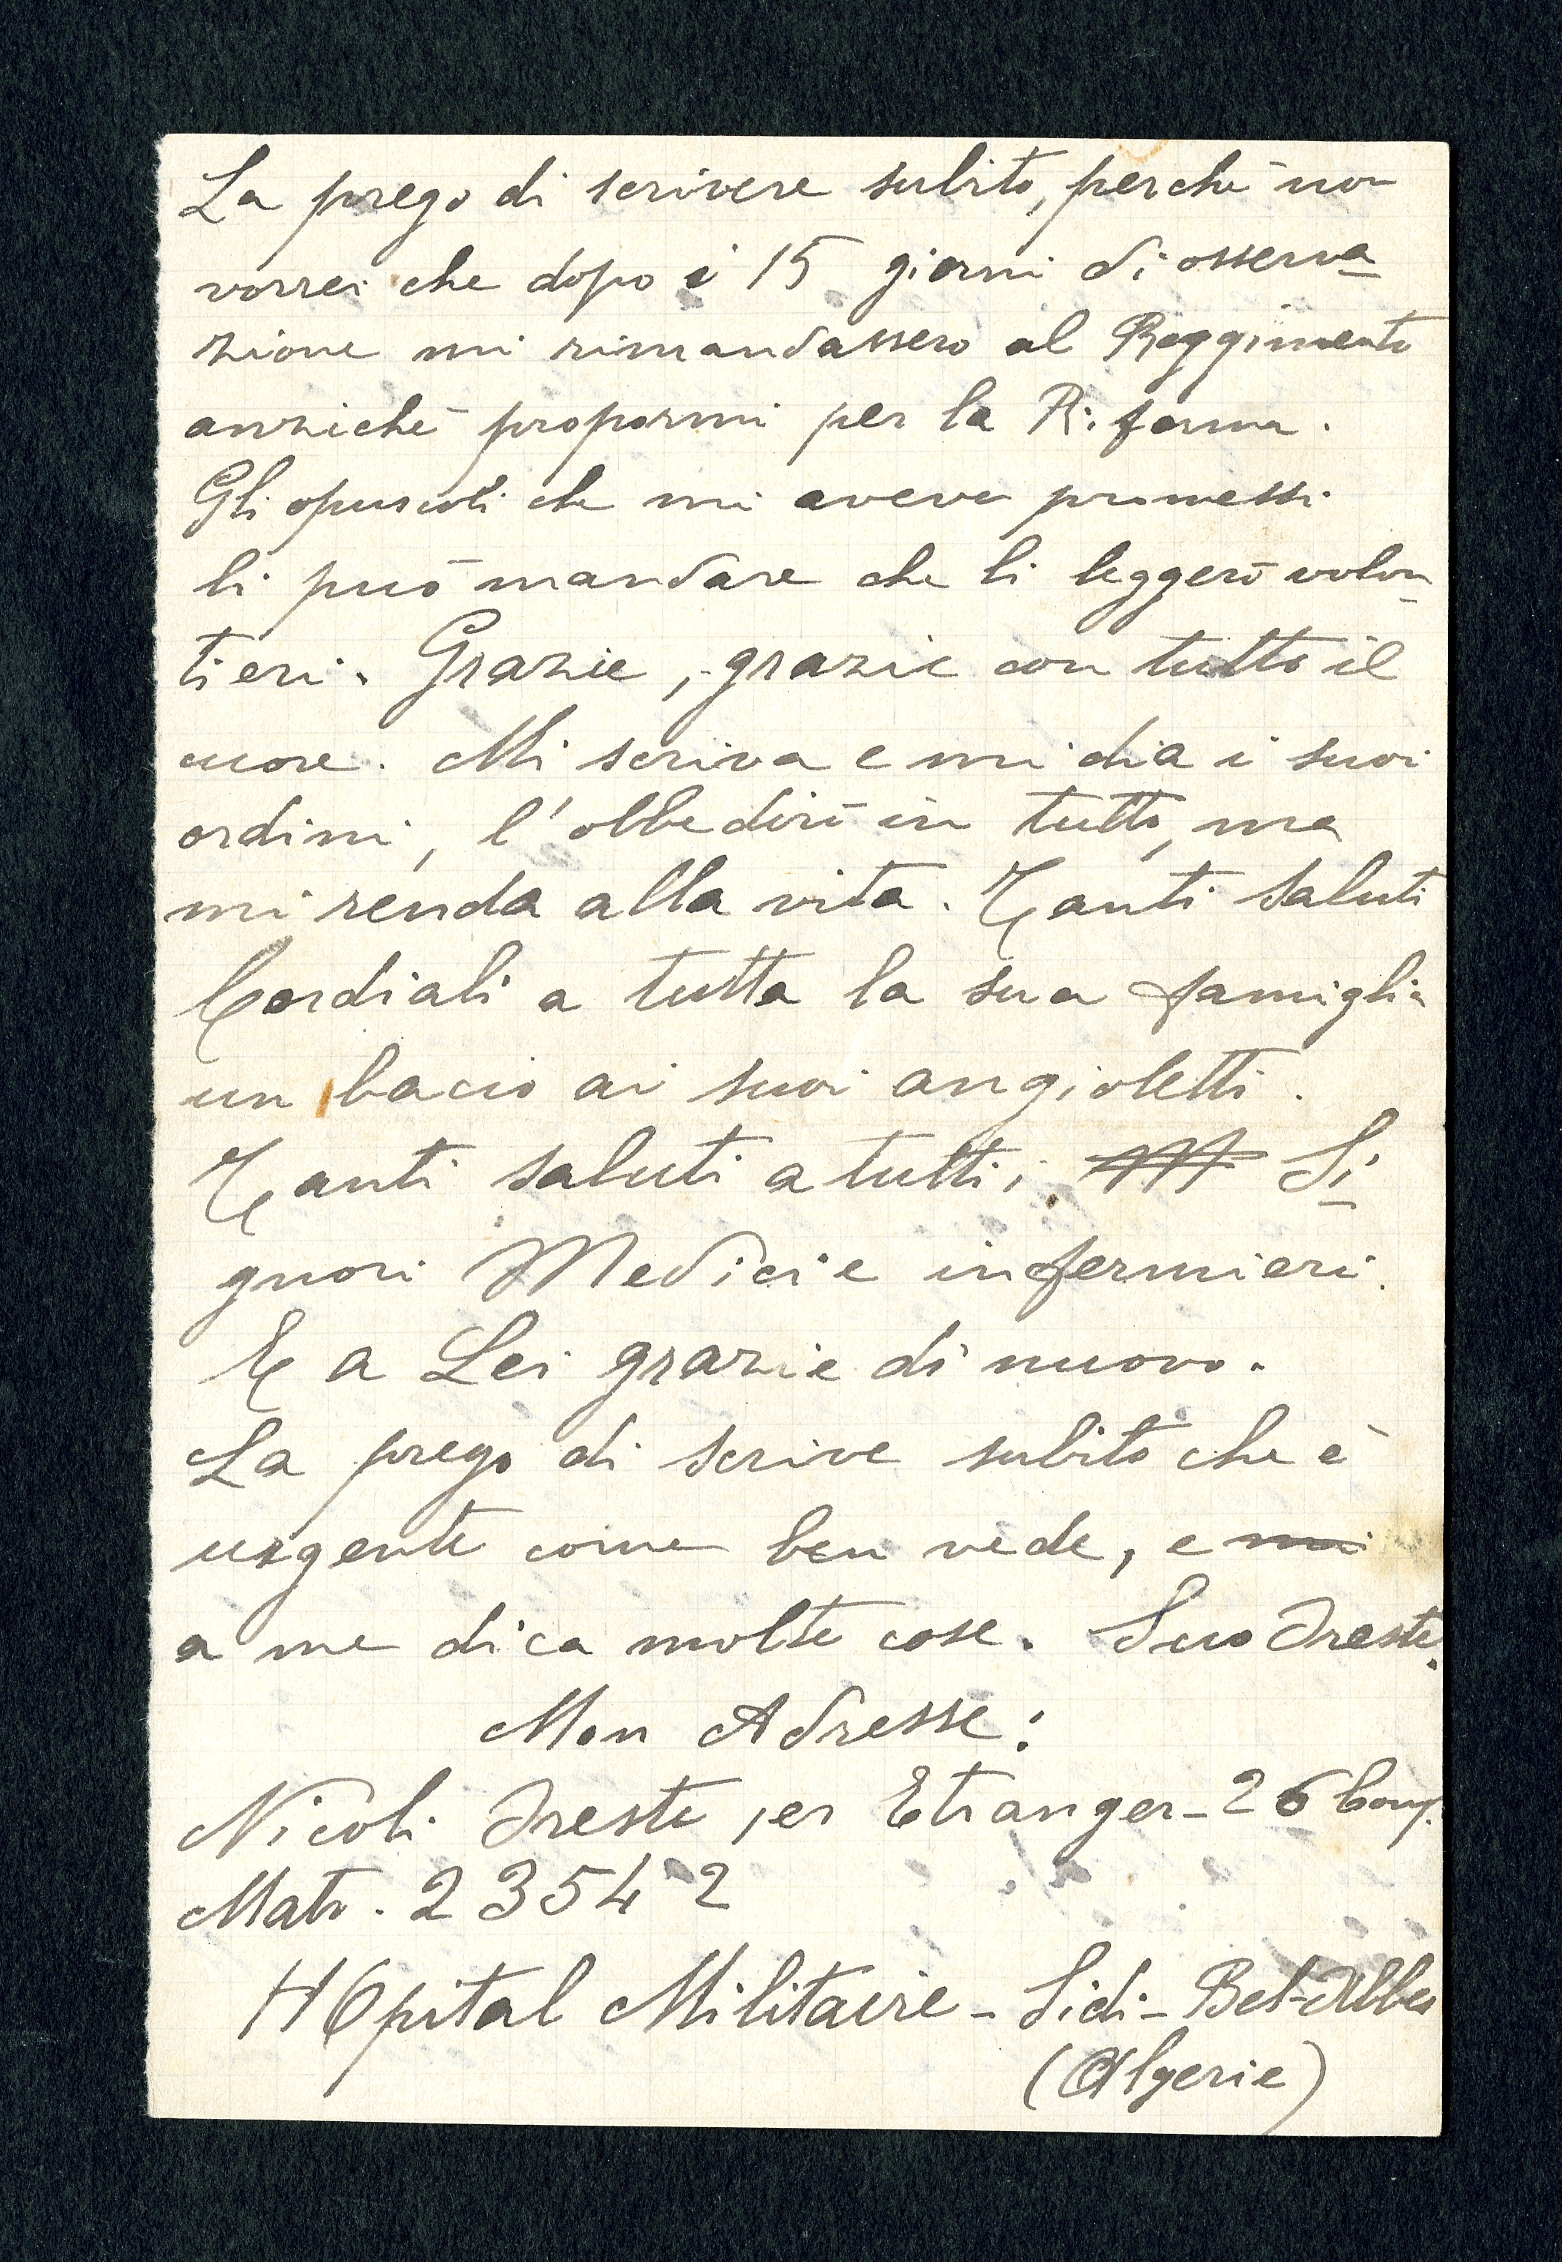 La prego di scrivere subito, perchè non
vorrei che dopo i 15 giorni di osserva-
zione mi rimandassero al Reggimento
anzichè propormi per la Riforma.
Gli opuscoli che mi aveva promessi
li può mandare che li leggerò volon-
tieri. Grazie, grazie con tutto il
cuore. Mi scriva e mi dia i suoi
ordini, l'obbedirò in tutto, ma
mi renda alla vita. Tanti saluti
Cordiali a tutta la sua famiglia
un bacio ai suoi angioletti.
Tanti saluti a tutti i Si-
gnori Medici e infermieri.
E a Lei grazie di nuovo.
La prego di scrive subito che è
urgente come ben vede, e mi
a me dica molte cose. Suo Oreste.
Mon Adresse:
Nicoli Oreste 1er Etranger - 26 Comp.
Matr. 23542
HOpital Militaire - Sidi - Bel-Abbes
(Algerie)